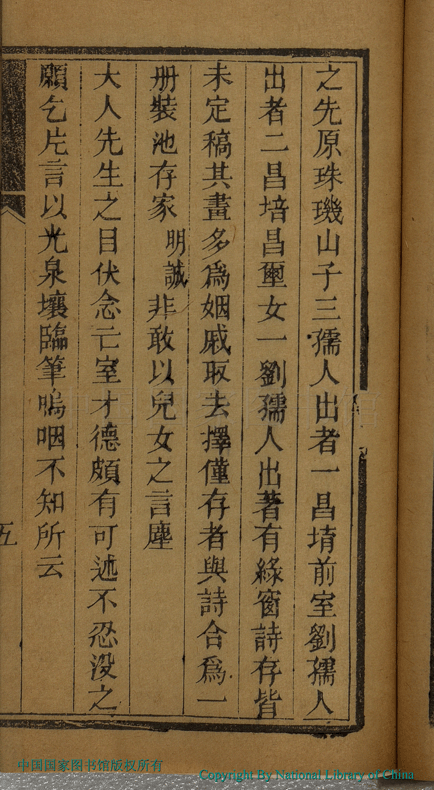 之先原珠璣山子三孺人出者一昌堉前室劉孺人
出者二昌培昌壐女一劉孺人出著有綠窗詩存皆
未定稿其畫多爲姻戚取去擇僅存者與詩合爲一
册裝池存家明誠非敢以兒女之言塵
大人先生之目伏念亡室才德頗有可述不忍没之
願乞片言以光泉壤臨筆嗚咽不知所云
五
中国国家图书馆版权所有
Copyright By National Library of China